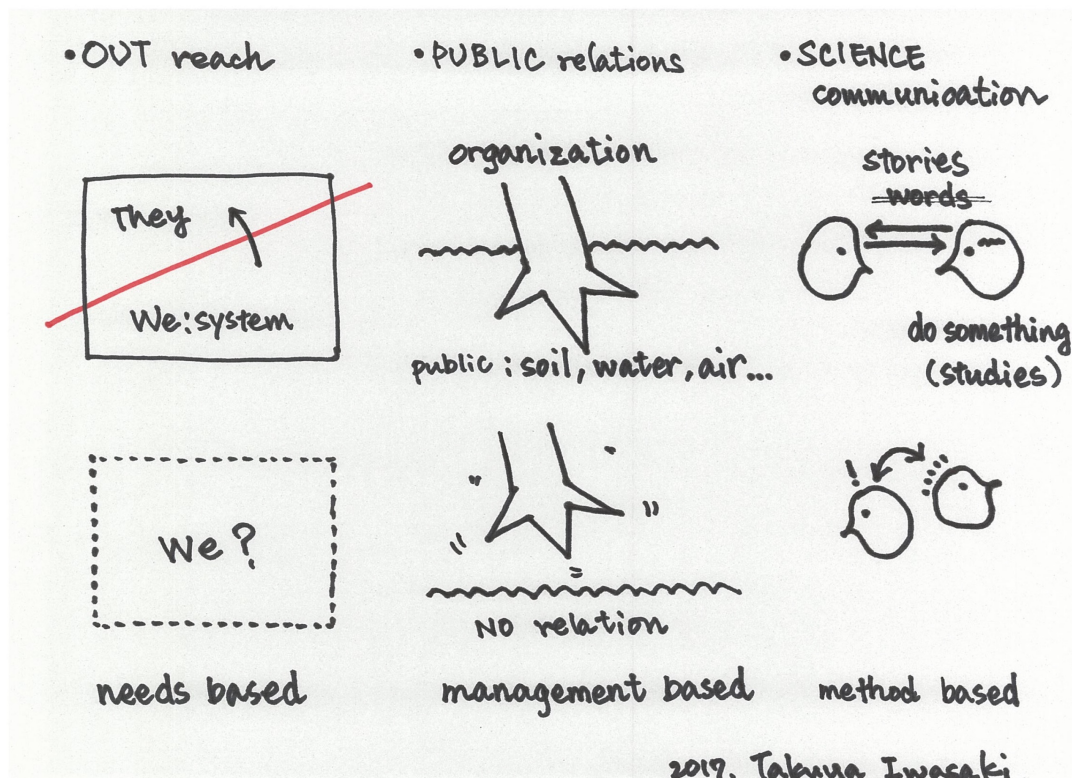 • OUT reach
They
We: system
We?
needs based
• PUBLIC relations
organization
public: soil, water, air...
NO relation
management based
• SCIENCE
communication
stories
words
do something
(studies)
method based
2017, Takuya Iwasaki